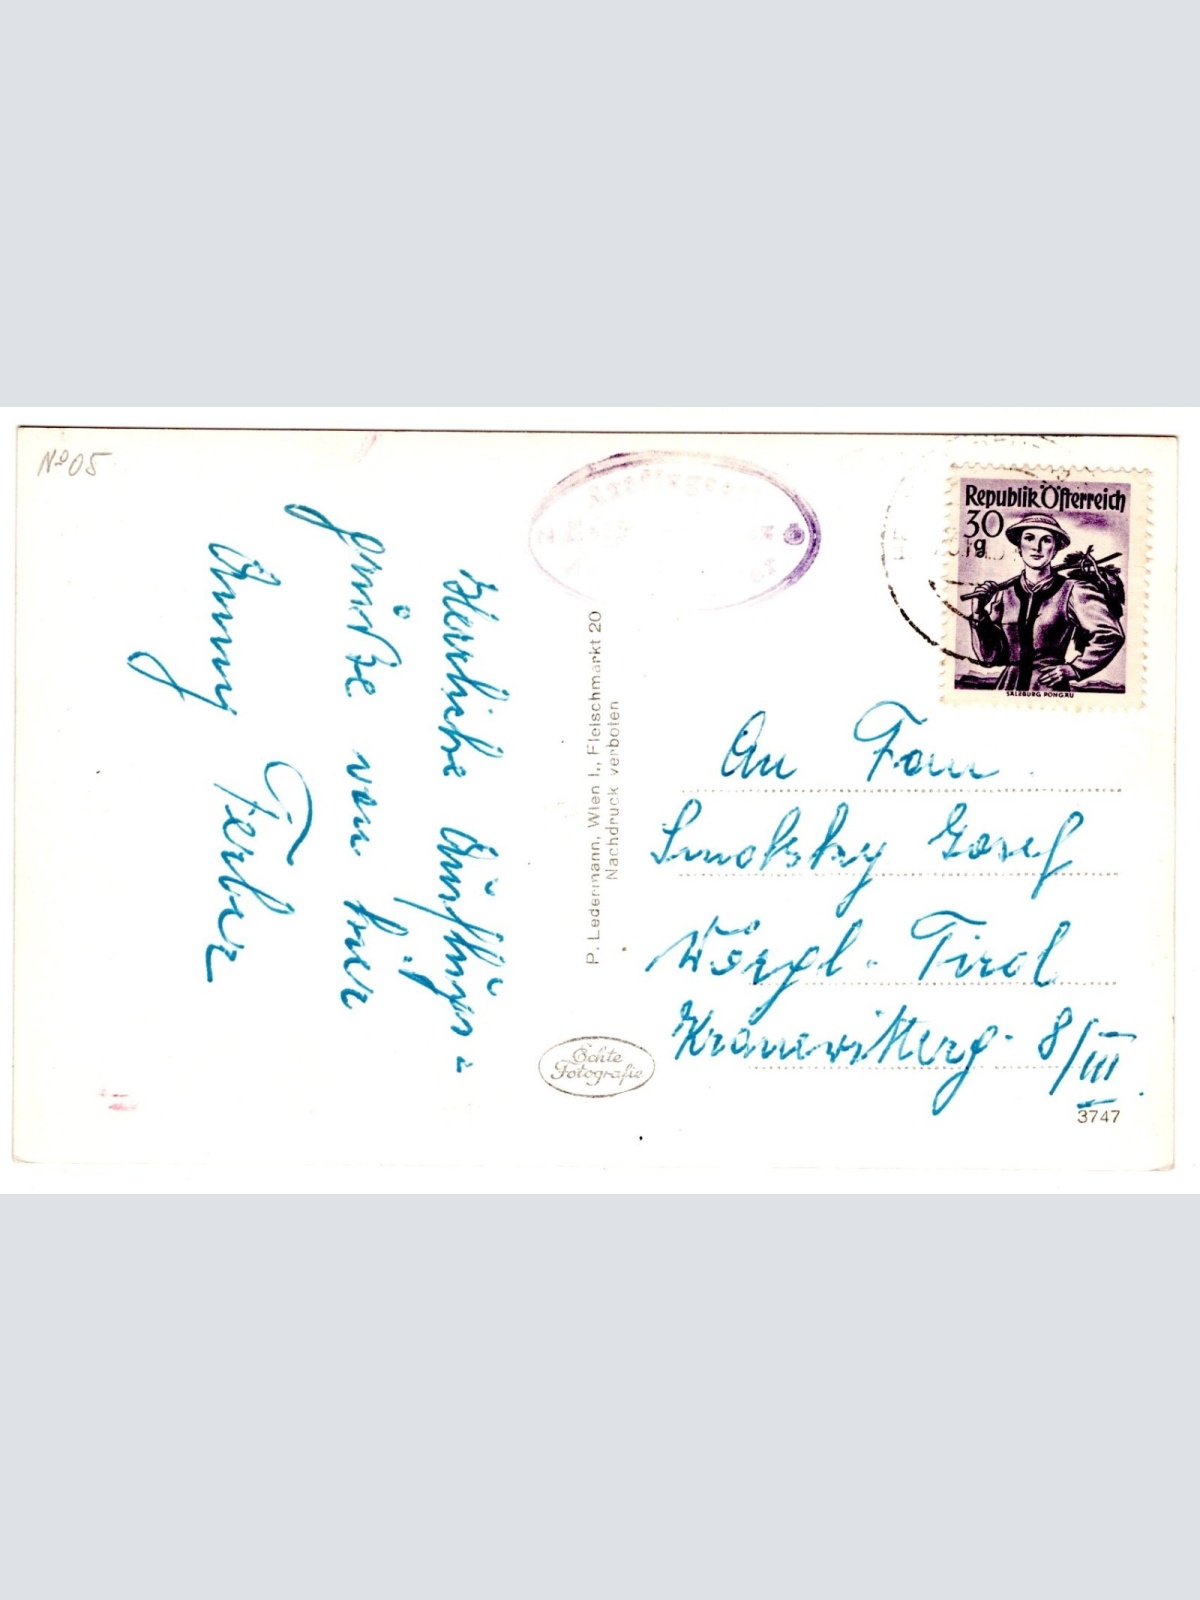 Nº 05
Herrliche Ausflugs-
grüße von hier
Anny Ferber
P. Ledermann, Wien I., Fleischmarkt 20
Nachdruck verboten
Echte
Fotografie
Republik Österreich
30
g
SALZBURG PONGAU
An Frau
Smolsky Josef
Wörgl - Tirol
Kranewitterg. 8/III
3747